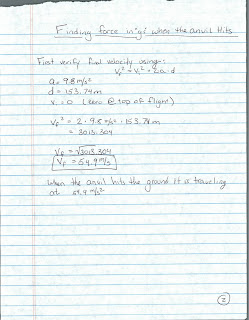 Finding force in "g"s when the anvil Hits
First verify final velocity using:
Vf² = Vi² + 2·a·d
a = 9.8 m/s²
d = 153.74m
Vi = 0 (zero @ top of flight)
Vf² = 2 · 9.8 m/s² · 153.74 m
= 3013.304
Vf = √3013.304
Vf = 54.9 m/s
When the anvil hits the ground it is traveling
at 54.9 m/s²
2